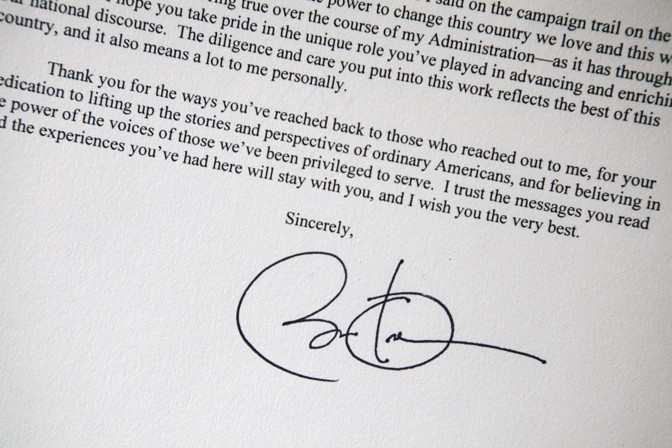 I said on the campaign trail on the
power to change this country we love and this w
true over the course of my Administration—as it has through
national discourse. hope you take pride in the unique role you've played in advancing and enrichi
country, and it also means a lot to me personally. The diligence and care you put into this work reflects the best of this
Thank you for the ways you've reached back to those who reached out to me, for your
edication to lifting up the stories and perspectives of ordinary Americans, and for believing in
e power of the voices of those we've been privileged to serve. I trust the messages you read
d the experiences you've had here will stay with you, and I wish you the very best.
Sincerely,